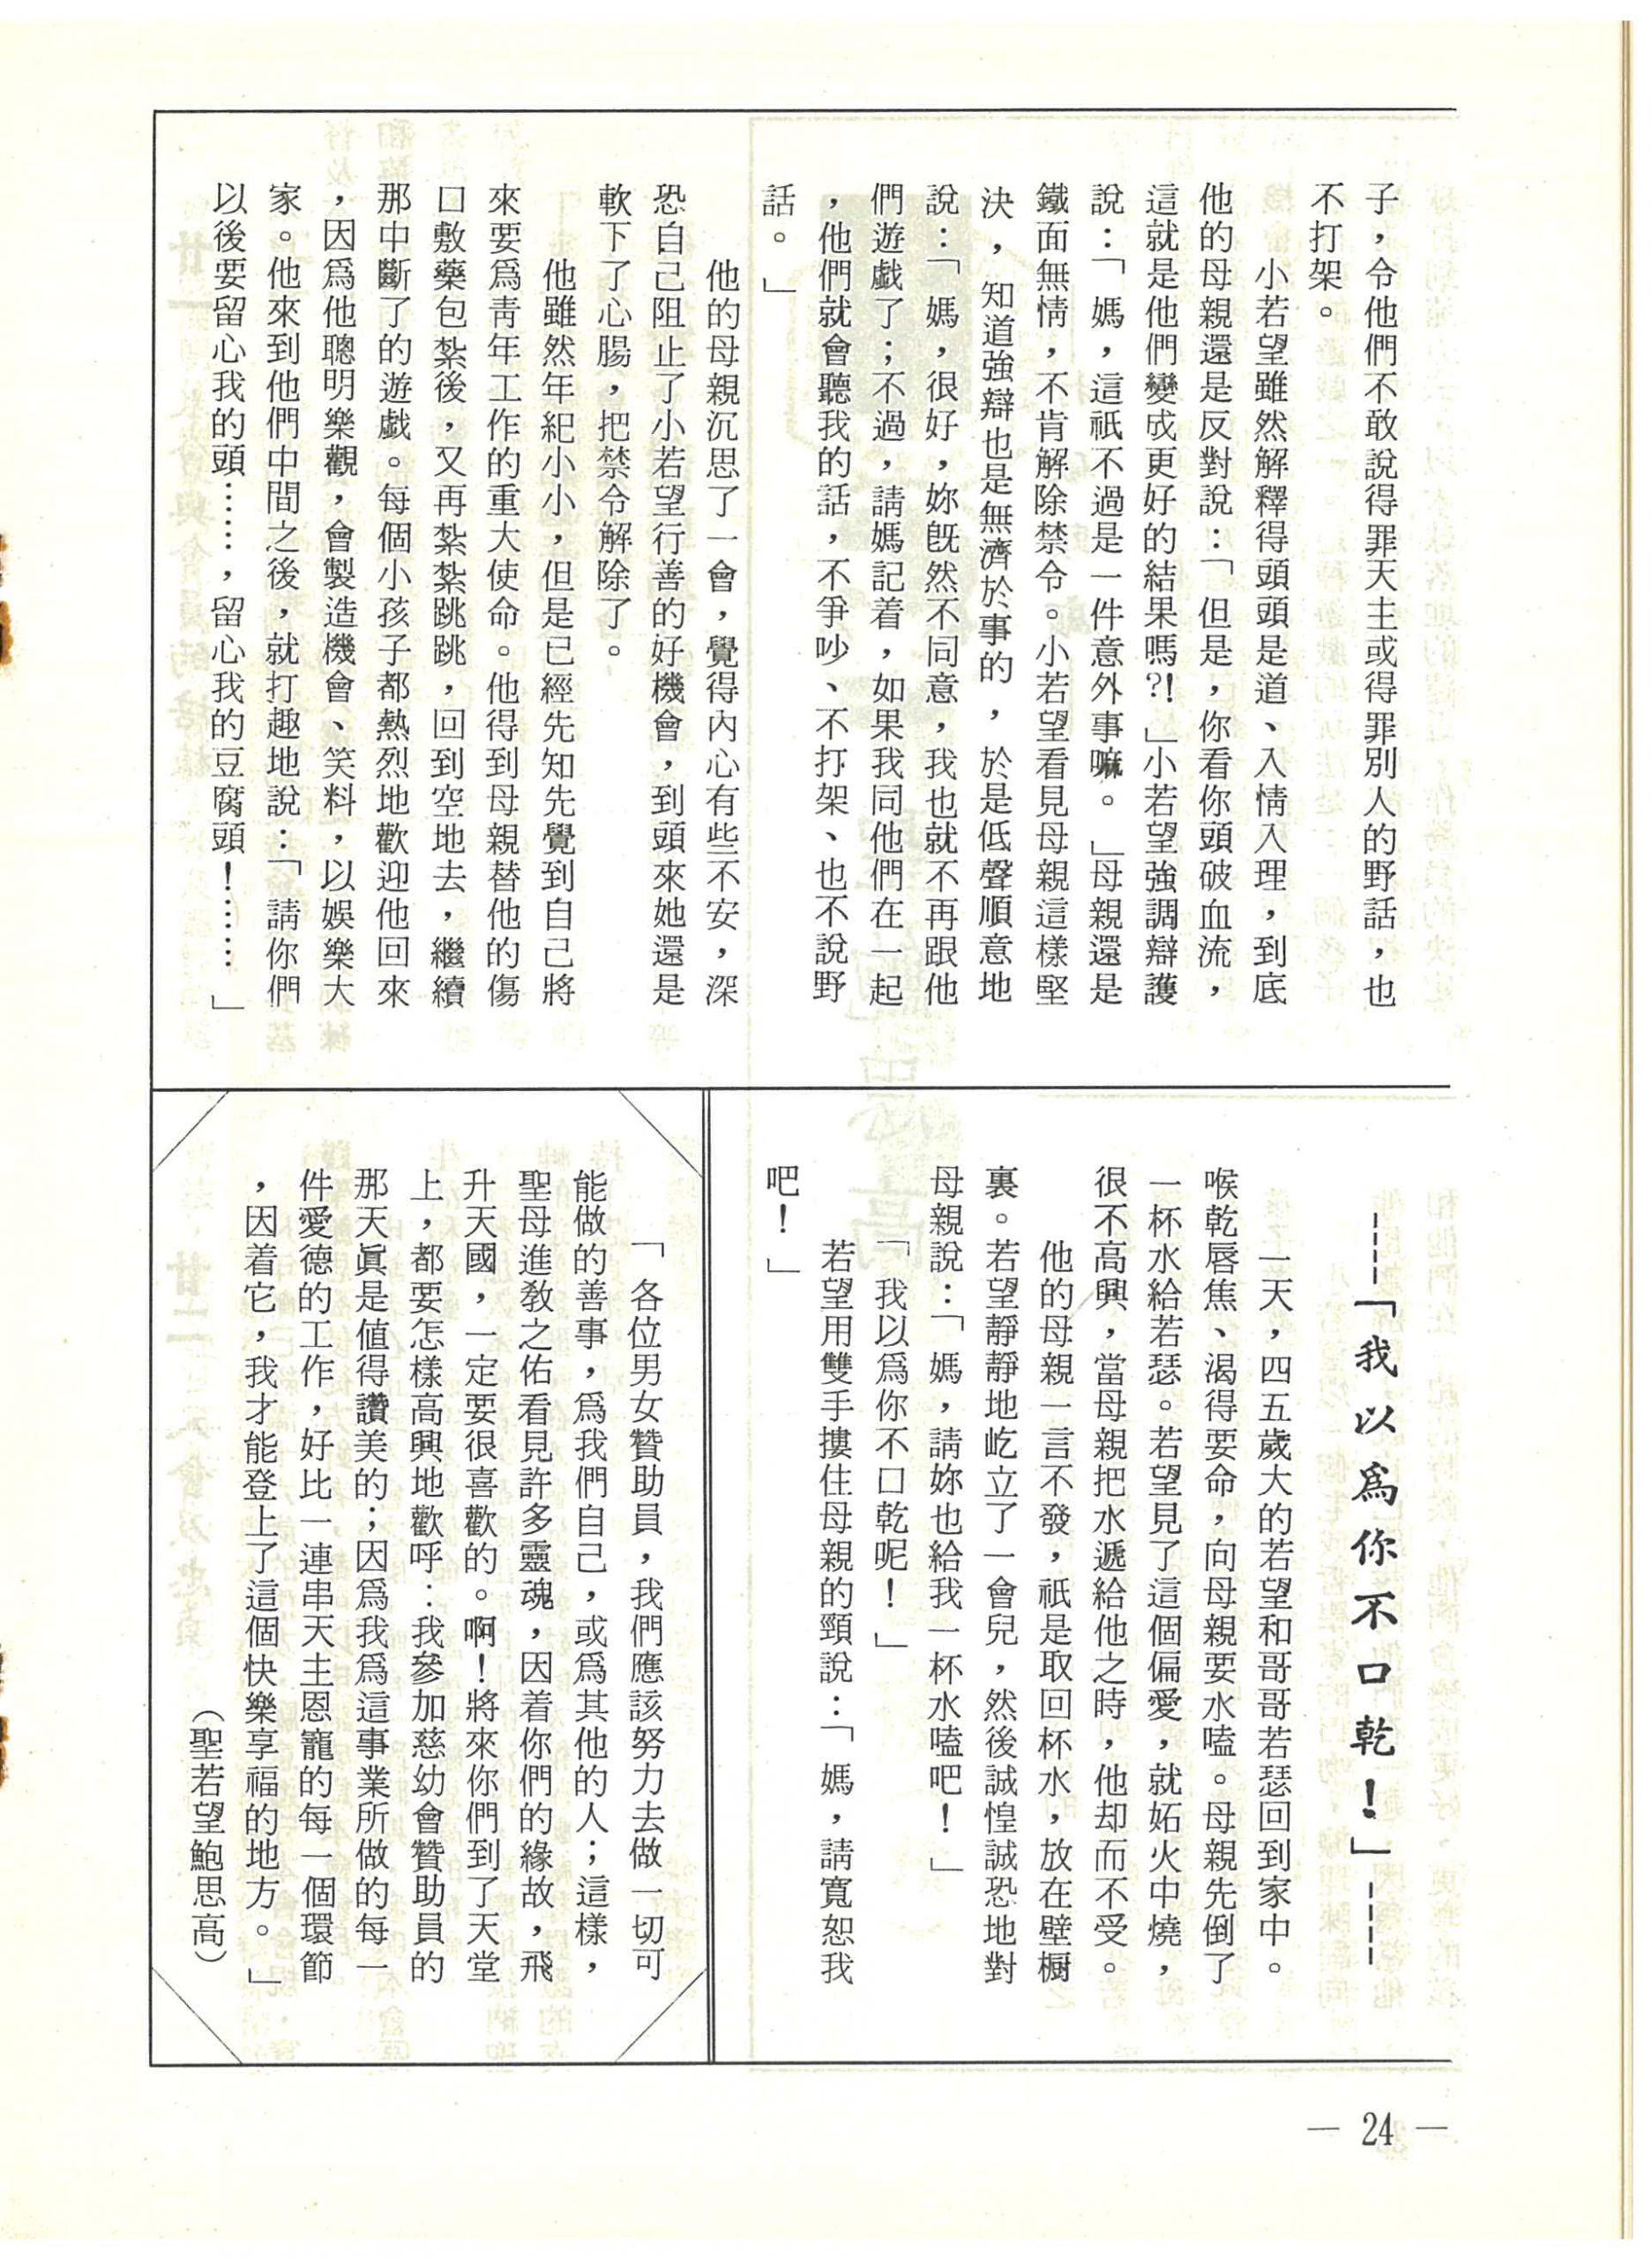 子，令他們不敢說得罪天主或得罪別人的野話，也
不打架。
小若望雖然解釋得頭頭是道、入情入理，到底
他的母親還是反對說：「但是，你看你頭破血流，
這就是他們變成更好的結果嗎?!」小若望強調辯護
說：「媽，這祇不過是一件意外事嘛。」母親還是
鐵面無情，不肯解除禁令。小若望看見母親這樣堅
決，知道強辯也是無濟於事的，於是低聲順意地
說：「媽，很好，妳旣然不同意，我也就不再跟他
們遊戲了；不過，請媽記着，如果我同他們在一起
，他們就會聽我的話，不爭吵、不打架、也不說野
話。」
他的母親沉思了一會，覺得內心有些不安，深
恐自己阻止了小若望行善的好機會，到頭來她還是
軟下了心腸，把禁令解除了。
他雖然年紀小小，但是已經先知先覺到自己將
來要爲靑年工作的重大使命。他得到母親替他的傷
口敷藥包紮後，又再紮紮跳跳，回到空地去，繼續
那中斷了的遊戲。每個小孩子都熱烈地歡迎他回來
，因爲他聰明樂觀，會製造機會、笑料，以娛樂大
家。他來到他們中間之後，就打趣地說：「請你們
以後要留心我的頭……，留心我的豆腐頭！……」
----「我以爲你不口乾！」----
一天，四五歲大的若望和哥哥若瑟回到家中。
喉乾唇焦、渴得要命，向母親要水嗑。母親先倒了
一杯水給若瑟。若望見了這個偏愛，就妬火中燒，
很不高興，當母親把水遞給他之時，他却而不受。
他的母親一言不發，祇是取回杯水，放在壁櫥
裏。若望靜靜地屹立了一會兒，然後誠惶誠恐地對
母親說：「媽，請妳也給我一杯水嗑吧！」
「我以爲你不口乾呢！」
若望用雙手摟住母親的頸說：「媽，請寬恕我
吧！」
「各位男女贊助員，我們應該努力去做一切可
能做的善事，爲我們自己，或爲其他的人；這樣，
聖母進敎之佑看見許多靈魂，因着你們的緣故，飛
升天國，一定要很喜歡的。啊！將來你們到了天堂
上，都要怎樣高興地歡呼：我參加慈幼會贊助員的
那天眞是値得讚美的；因爲我爲這事業所做的每一
件愛德的工作，好比一連串天主恩寵的每一個環節
，因着它，我才能登上了這個快樂享福的地方。」
（聖若望鮑思高）
— 24 —